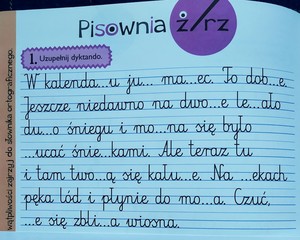 Pisownia ż/rz
1. Uzupełnij dyktando.
W kalenda...u ju... ma...ec. To dob...e.
Jeszcze niedawno na dwo...e le...ało
du...o śniegu i mo...na się było
...ucać śnie...kami. Ale teraz tu
i tam two...ą się kału...e. Na ...ekach
pęka lód i płynie do mo...a. Czuć,
...e się zbli...a wiosna.
wątpliwości zajrzyj do słownika ortograficznego.